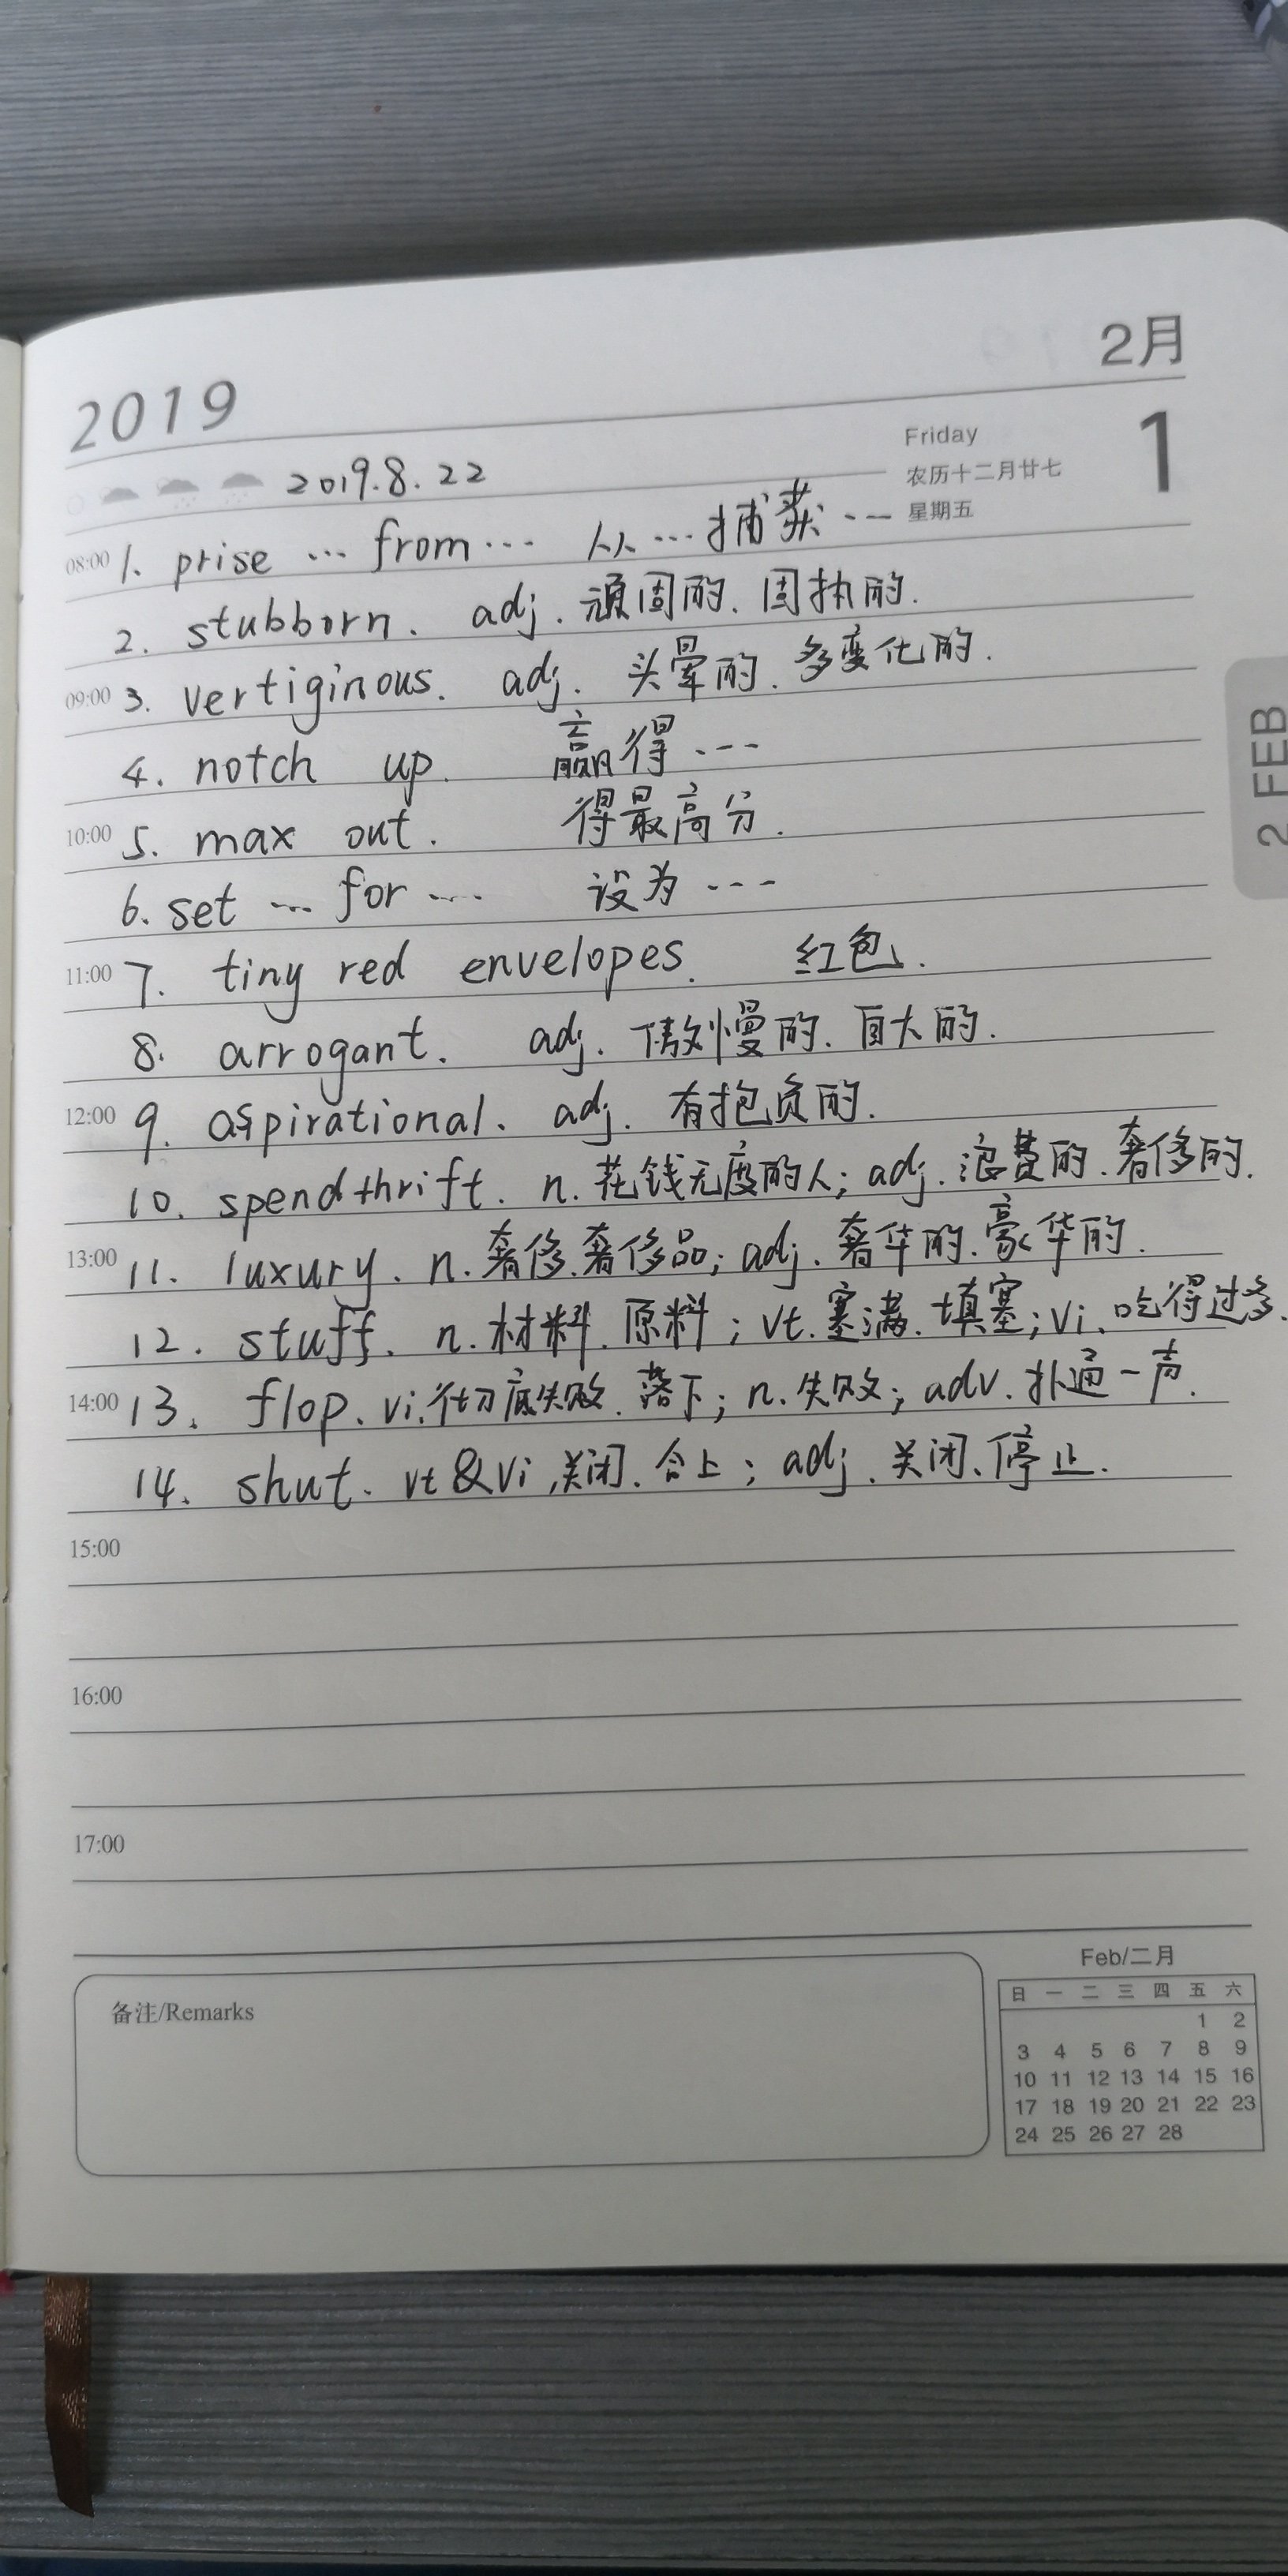 2019 2月
Friday 1
农历十二月廿七
2019.8.22
星期五
08:00 1. prise … from … 从…捕获…
2. stubborn. adj. 顽固的、固执的.
09:00 3. vertiginous. adj. 头晕的、多变化的.
4. notch up. 赢得…
10:00 5. max out. 得最高分.
6. set … for … 设为…
11:00 7. tiny red envelopes. 红包.
8. arrogant. adj. 傲慢的、自大的.
12:00 9. aspirational. adj. 有抱负的.
10. spendthrift. n. 花钱无度的人; adj. 浪费的、奢侈的.
13:00 11. luxury. n. 奢侈、奢侈品; adj. 奢华的、豪华的.
12. stuff. n. 材料、原料; vt. 塞满、填塞; vi. 吃得过多.
14:00 13. flop. vi. 彻底失败、落下; n. 失败; adv. 扑通一声.
14. shut. vt & vi. 关闭、合上; adj. 关闭、停止.
15:00
16:00
17:00
2 FEB
备注/Remarks
Feb/二月
日 一 二 三 四 五 六
1 2
3 4 5 6 7 8 9
10 11 12 13 14 15 16
17 18 19 20 21 22 23
24 25 26 27 28